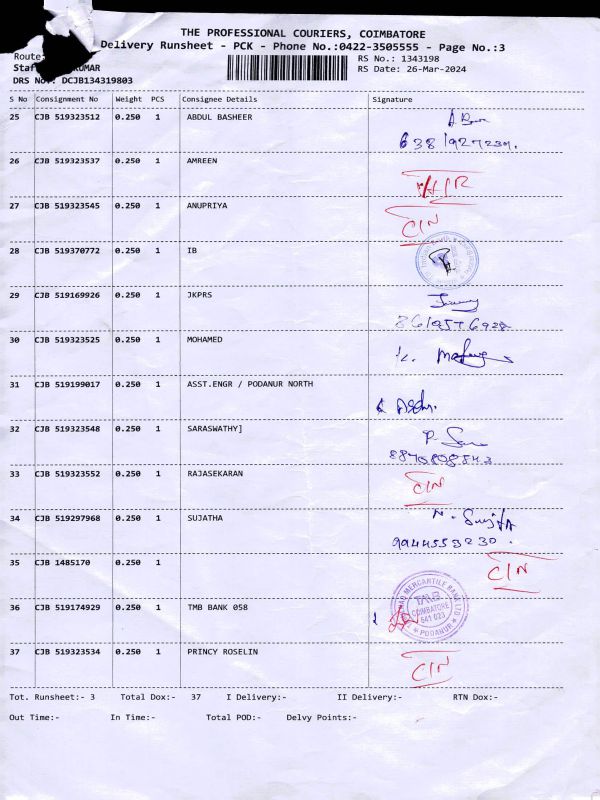 THE PROFESSIONAL COURIERS, COIMBATORE
Delivery Runsheet - PCK - Phone No.:0422-3505555 - Page No.:3
Route RS No.: 1343198
Staf KUMAR RS Date: 26-Mar-2024
DRS No.: DCJB134319803
S No Consignment No Weight PCS Consignee Details Signature
25 CJB 519323512 0.250 1 ABDUL BASHEER
26 CJB 519323537 0.250 1 AMREEN
27 CJB 519323545 0.250 1 ANUPRIYA CIN
28 CJB 519370772 0.250 1 IB
29 CJB 519169926 0.250 1 JKPRS
30 CJB 519323525 0.250 1 MOHAMED
31 CJB 519199017 0.250 1 ASST.ENGR / PODANUR NORTH
32 CJB 519323548 0.250 1 SARASWATHY]
33 CJB 519323552 0.250 1 RAJASEKARAN CIN
34 CJB 519297968 0.250 1 SUJATHA
9944553230.
35 CJB 1485170 0.250 1 CIN
36 CJB 519174929 0.250 1 TMB BANK 058 MERCANTILE BANK LTD TMB COIMBATORE 641 023 PODANUR
37 CJB 519323534 0.250 1 PRINCY ROSELIN CIN
Tot. Runsheet:- 3 Total Dox:- 37 I Delivery:- II Delivery:- RTN Dox:-
Out Time:- In Time:- Total POD:- Delvy Points:-